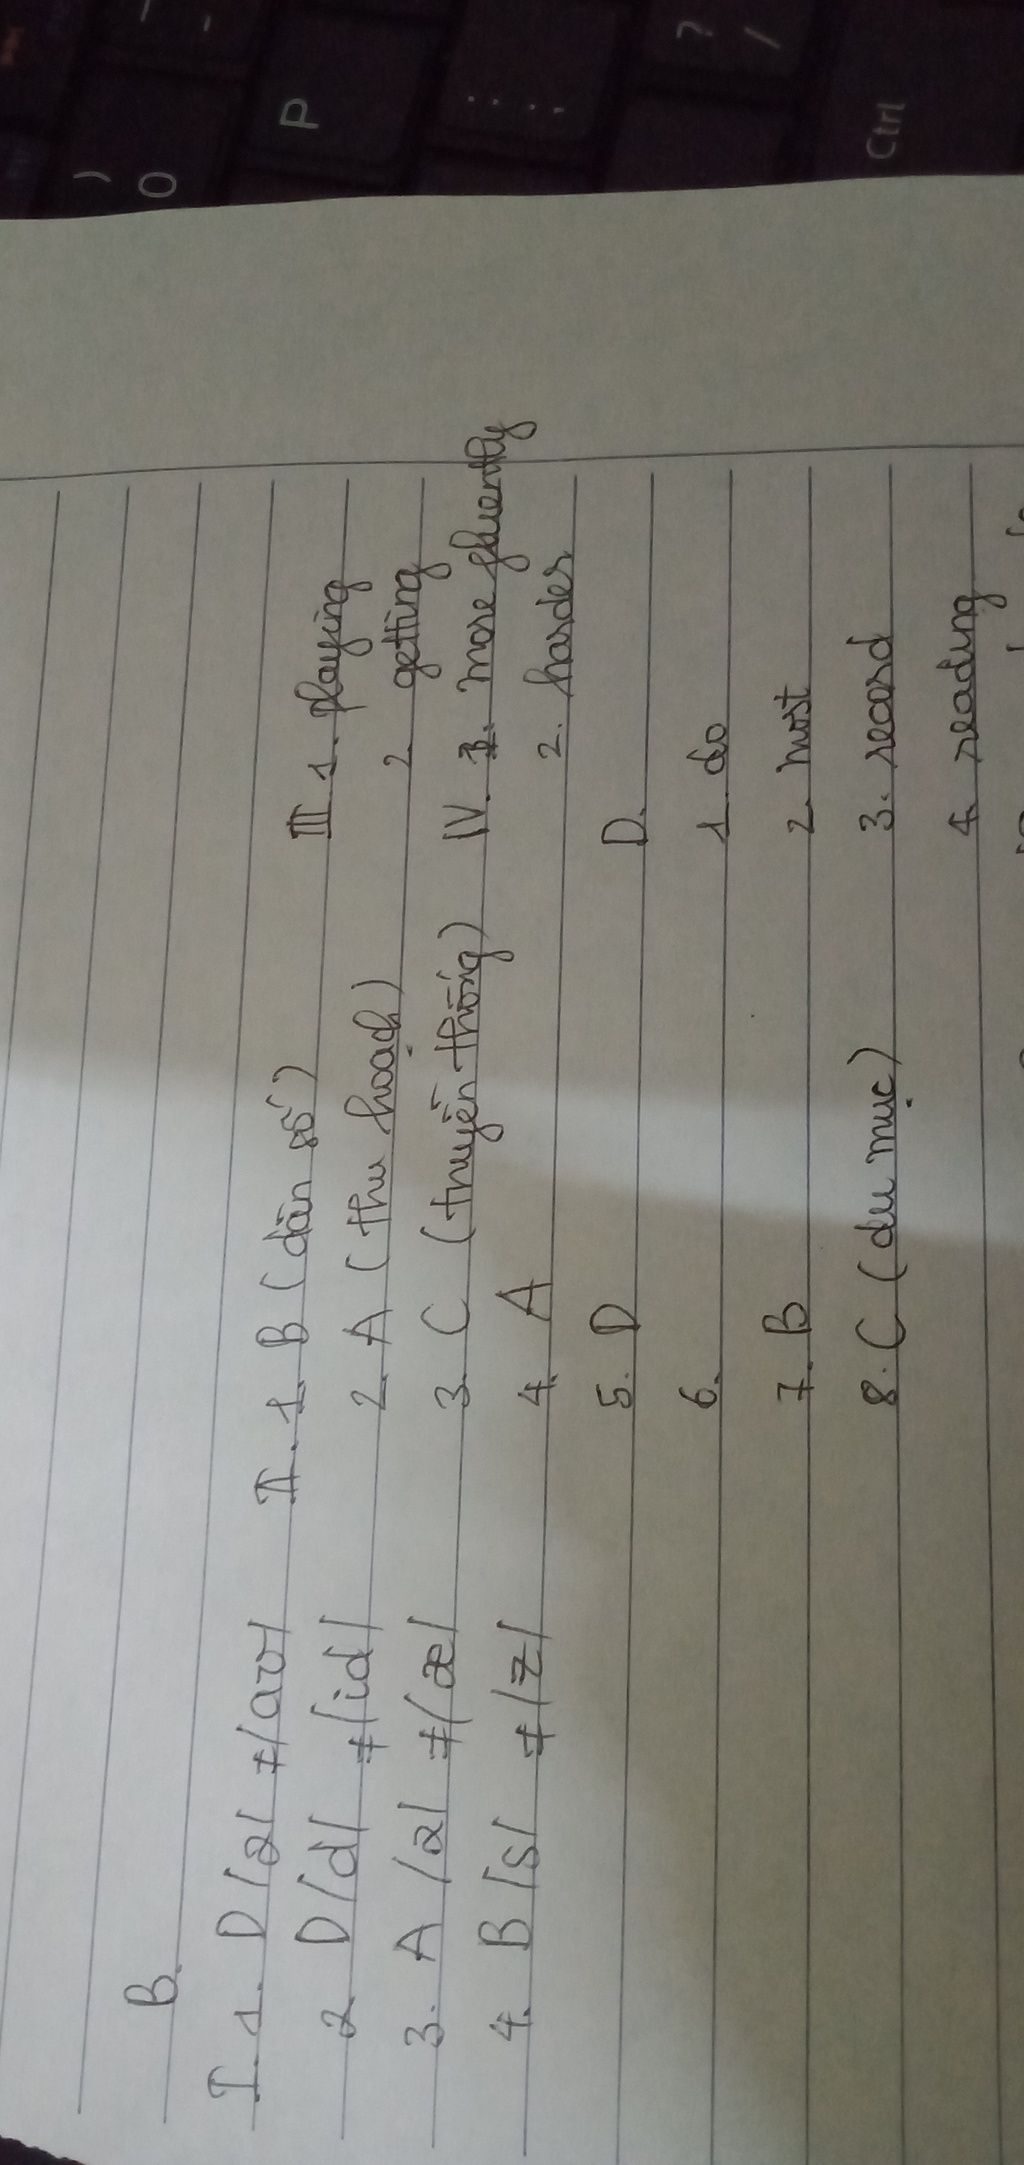 B.
I. 1. D /ə/ ≠ /aʊ/ II. 1. B (dân số) III 1. playing
2. D /d/ ≠ /id/ 2. A (thu hoạch) 2. getting
3. A /ə/ ≠ /æ/ 3. C (truyền thống) IV. 1. more fluently
4. B /s/ ≠ /z/ 4. A 2. harder
5. D D.
6. 1. do
7. B 2. most
8. C (du mục) 3. record
4. reading
) 0
P
: ;
? /
Ctrl